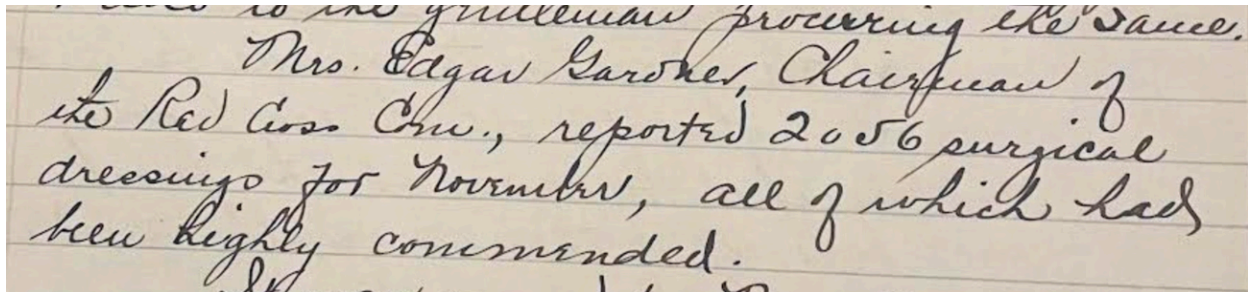 to the gentleman procuring the same.
Mrs. Edgar Gardner, Chairman of
the Red Cross Com., reported 2056 surgical
dressings for November, all of which had
been highly commended.